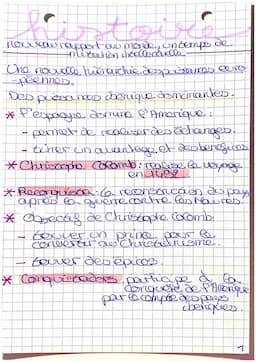 histoire
nouveau rapport au monde, un temps de
mutation intellectuelle
Une nouvelle hiérarchie des puissances euro
-péennes.
Des puissances ibérique dominantes.
* l'espagne domine l'Amérique :
- permet de réaliser des échanges.
- tirer un avantage et des bénéfices
* Christophe Colomb : réalise le voyage
en 1492
* Reconquista : la reconquête du pays
après la guerre contre les Maures.
* Objectif de Christophe Colomb :
- trouver un prince pour la
convertir au Christianisme.
- trouver des épices.
* Conquistadors : participe à la
conquête de l'Amérique
par le compte des pays
ibériques.
1